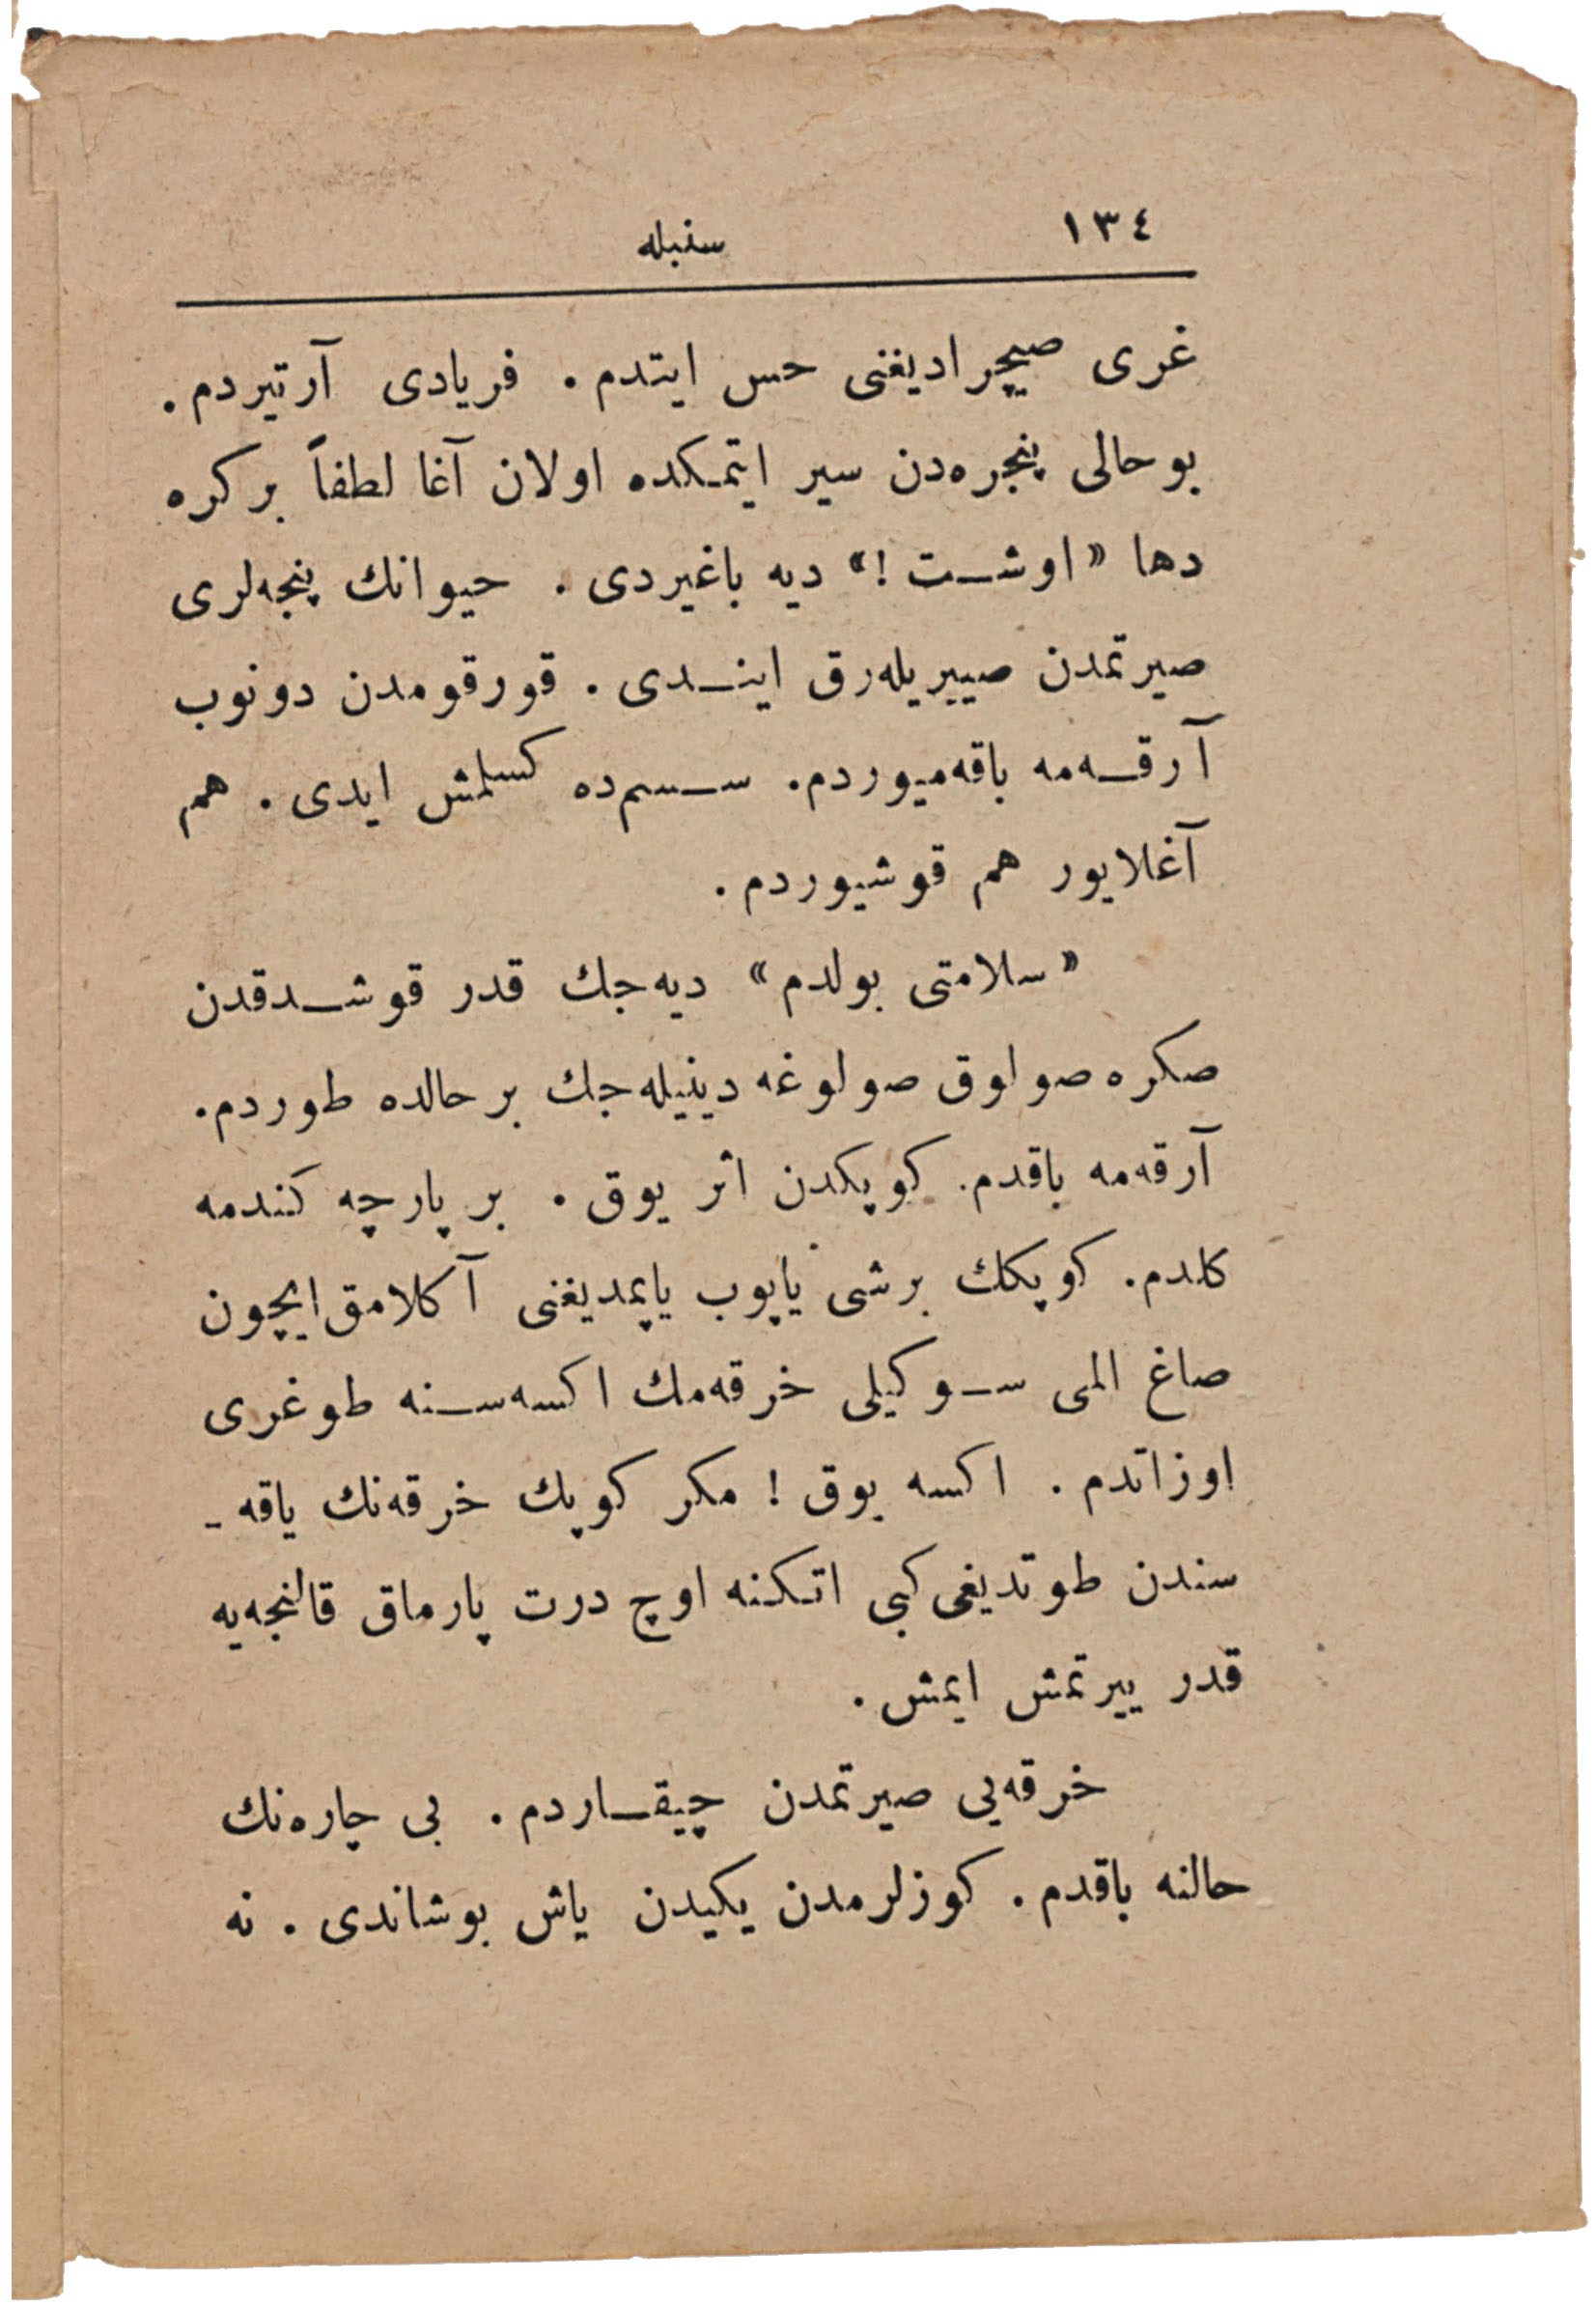 ١٣٤
سنبله
غری صیچرادیغنی حس ایتدم . فریادی آرتیردم .
بو حالی پنجره‌دن سیر ایتمکده اولان آغا لطفاً بر کره
دها « اوشـت ! » دیه باغیردی . حیوانك پنجه‌لری
صیرتمدن صییریله‌رق اینـدی . قورقومدن دونوب
آرقـه‌مه باقه‌میوردم . سـسم‌ده کسلمش ایدی . هم
آغلایور هم قوشیوردم .
« سلامتی بولدم » دیه‌جك قدر قوشـدقدن
صکره صولوق صولوغه دینیله‌جك بر حالده طوردم .
آرقه‌مه باقدم . کوپکدن اثر یوق . بر پارچه کندمه
کلدم . کوپکك برشی یاپوب یاپمدیغنی آکلامق ایچون
صاغ المی سـوکیلی خرقه‌مك اکسه‌سـنه طوغری
اوزاتدم . اکسه یوق ! مکر کوپك خرقه‌نك یاقه -
سندن طوتدیغی کبی اتکنه اوچ درت پارماق قالنجه‌یه
قدر ییرتمش ایمش .
خرقه‌یی صیرتمدن چیقـاردم . بی چاره‌نك
حالنه باقدم . کوزلرمدن یکیدن یاش بوشاندی . نه